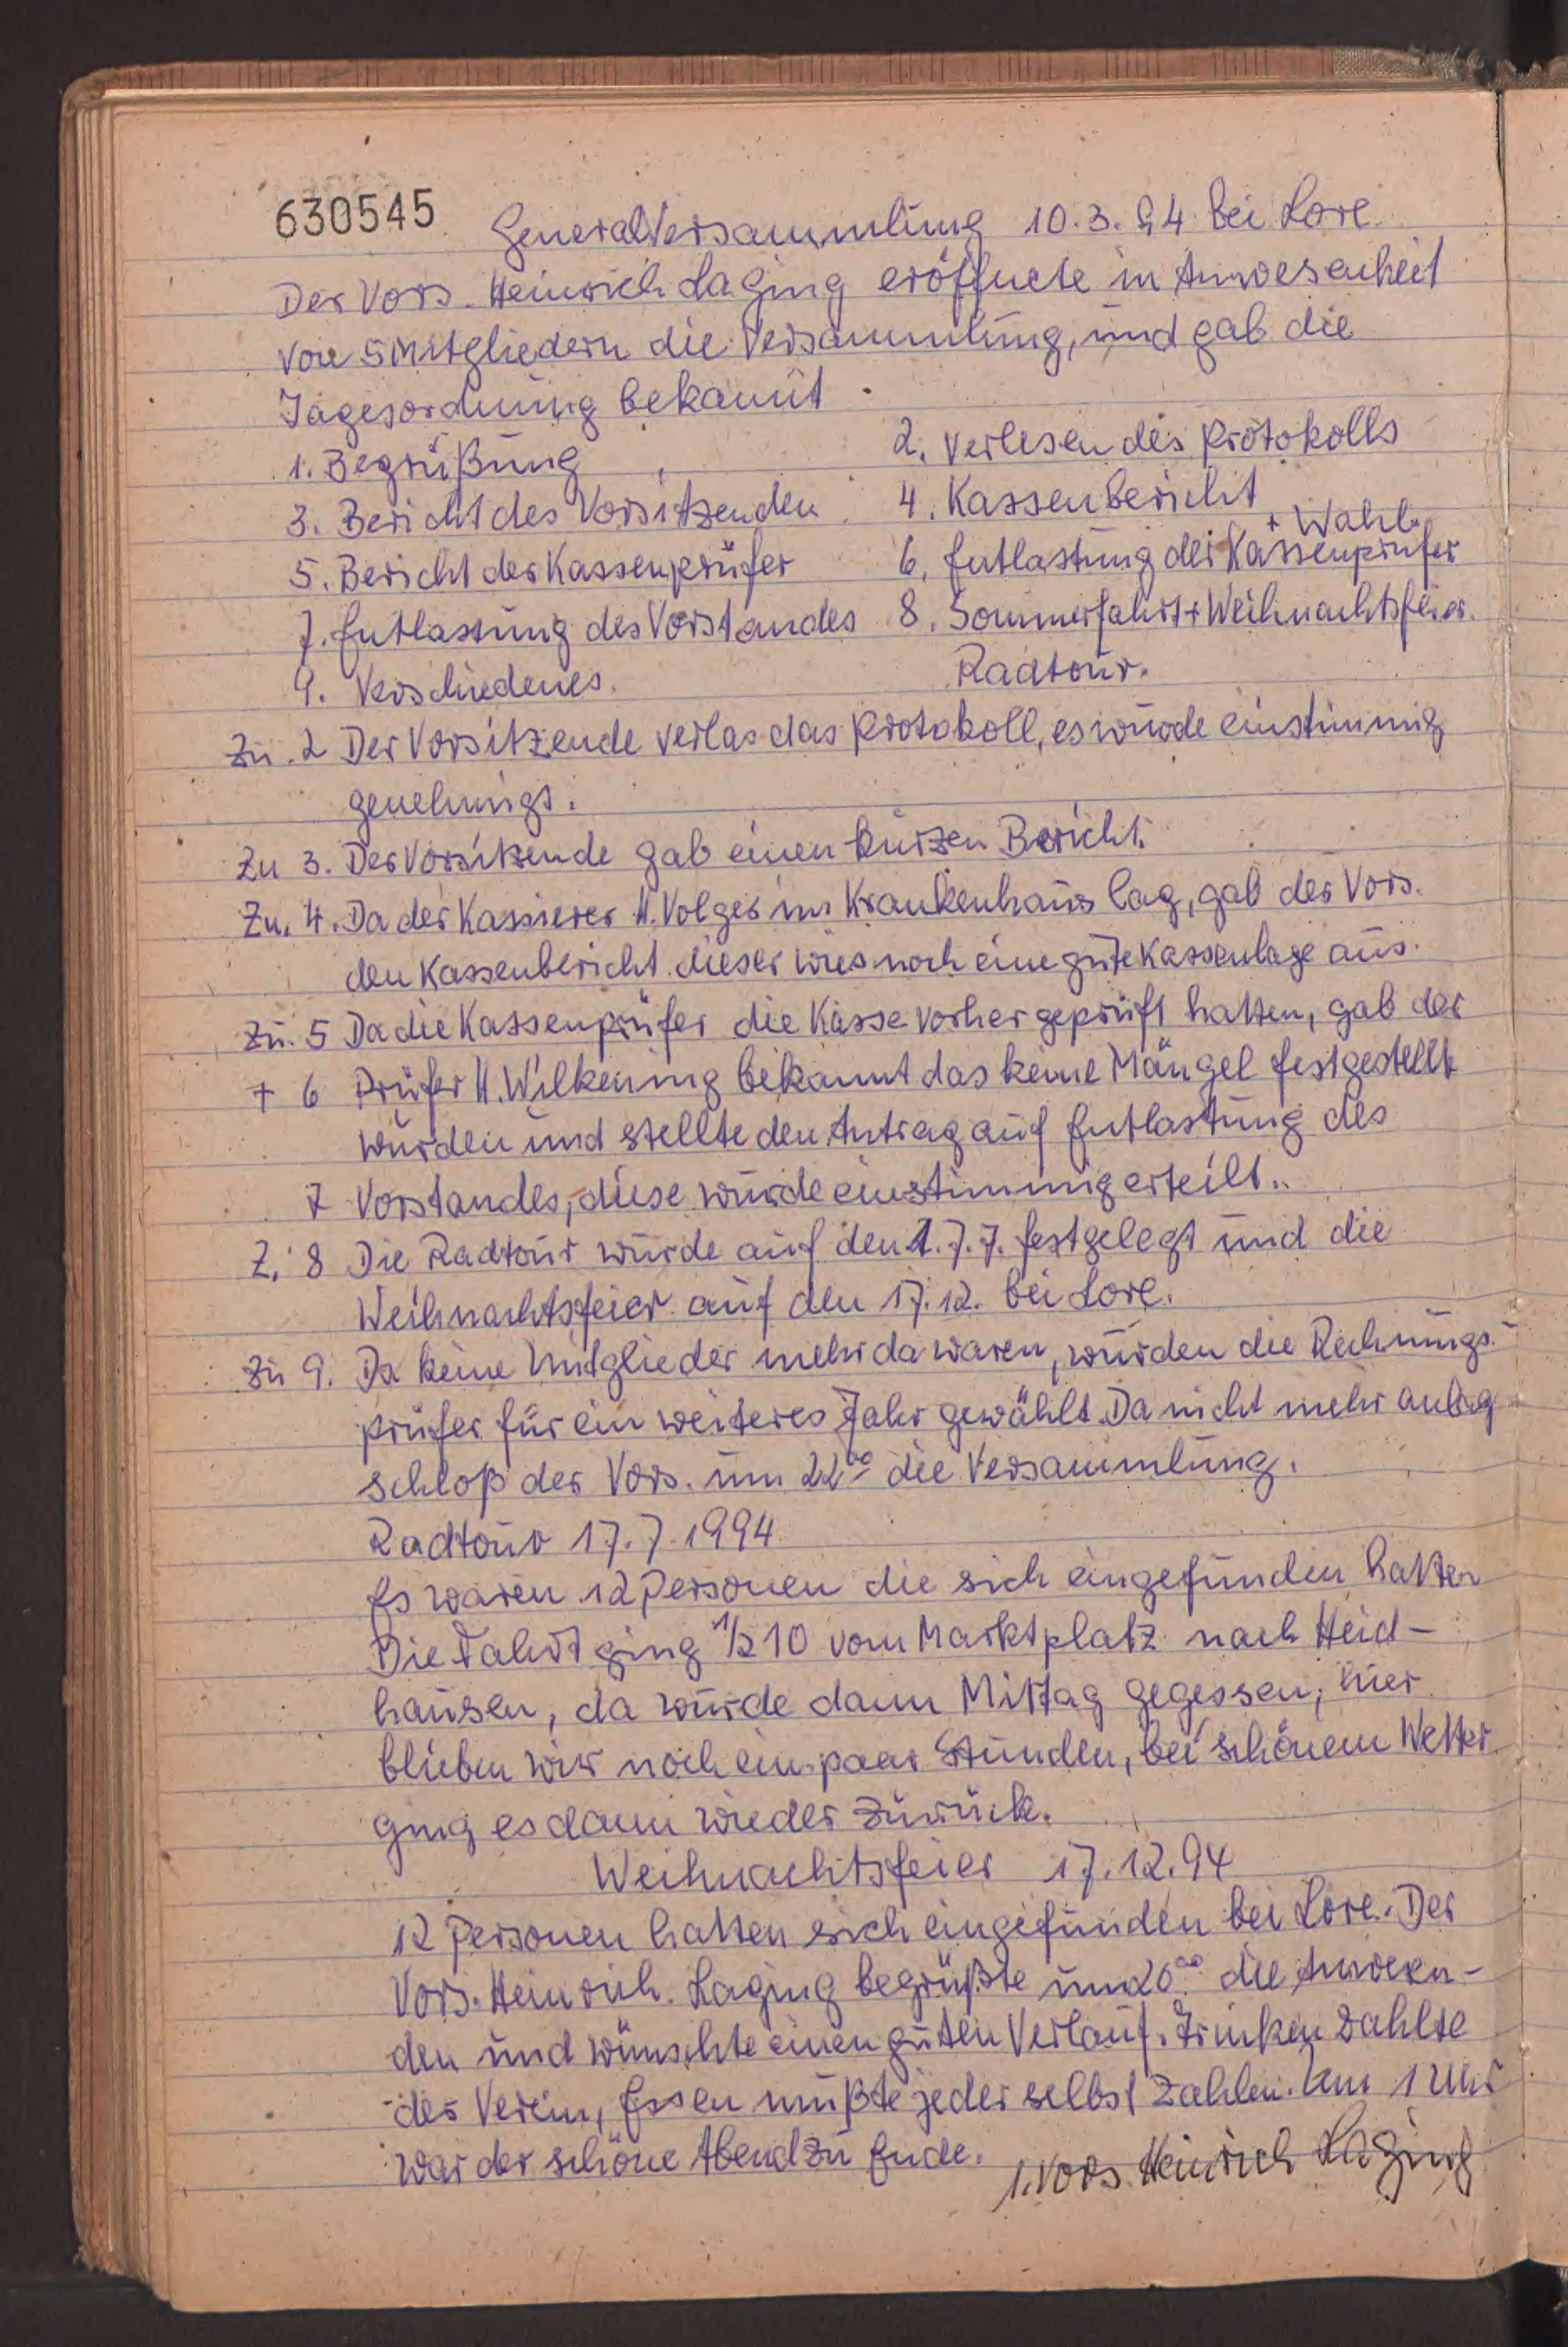 630545 Generalversammlung 10.3.94 bei Lore.
Der Vors. Heinrich Laging eröffnete in Anwesenheit
von 5 Mitgliedern die Versammlung, und gab die
Tagesordnung bekannt.
1. Begrüßung 2. Verlesen des Protokolls
3. Bericht des Vorsitzenden 4. Kassenbericht
+ Wahl
5. Bericht der Kassenprüfer 6. Entlastung der Kassenprüfer
7. Entlassung des Vorstandes 8. Sommerfahrt + Weihnachtsfeier.
9. Verschiedenes. Radtour.
Zu. 2 Der Vorsitzende verlas das Protokoll, es wurde einstimmig
genehmigt.
Zu 3. Der Vorsitzende gab einen kurzen Bericht.
Zu. 4. Da der Kassierer H. Volger im Krankenhaus lag, gab der Vors.
den Kassenbericht dieser wies noch eine gute Kassenlage aus.
Zu. 5 Da die Kassenprüfer die Kasse vorher geprüft hatten, gab der
+ 6 Prüfer H. Wilkening bekannt das keine Mängel festgestellt
wurden und stellte den Antrag auf Entlastung des
7 Vorstandes, diese wurde einstimmig erteilt..
Z. 8 Die Radtour wurde auf den 1.7.7. festgelegt und die
Weihnachtsfeier auf den 17.12. bei Lore.
Zu 9. Da keine Mitglieder mehr da waren, wurden die Rechnungs-
prüfer für ein weiteres Jahr gewählt. Da nicht mehr anlag
schloß der Vors. um 22⁰⁰ die Versammlung.
Radtour 17.7.1994
Es waren 12 Personen die sich eingefunden hatten
Die Fahrt ging 1/2 10 vom Marktplatz nach Heid-
hausen, da wurde dann Mittag gegessen, hier
blieben wir noch ein paar Stunden, bei schönem Wetter
ging es dann wieder zurück.
Weihnachtsfeier 17.12.94
12 Personen hatten sich eingefunden bei Lore. Der
Vors. Heinrich Laging begrüßte um 20⁰⁰ die Anwesen-
den und wünschte einen guten Verlauf. Trinken zahlte
der Verein, Essen mußte jeder selbst zahlen. Um 1 Uhr
war der schöne Abend zu Ende. 1. Vors. Heinrich Laging